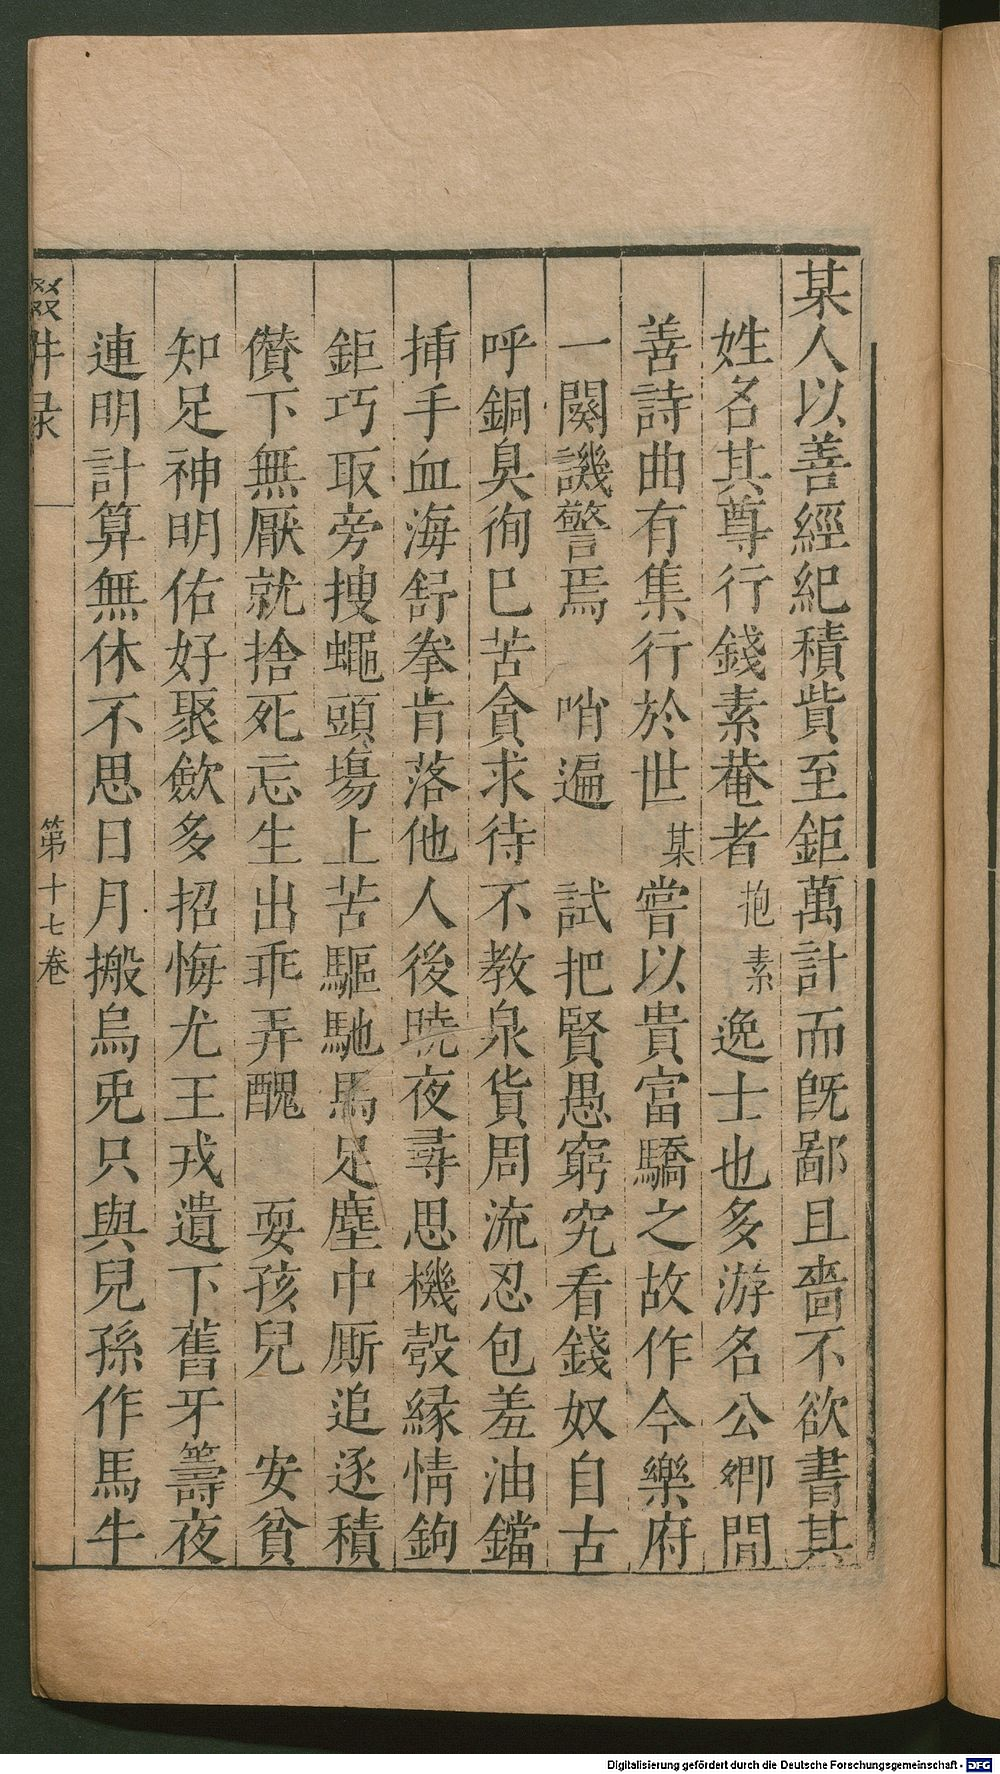 某人以善經紀積貲至鉅萬計而旣鄙且嗇不欲書其
姓名其尊行錢素菴者抱素逸士也多游名公卿間
善詩曲有集行於世某嘗以貴富驕之故作今樂府
一闋譏警焉　哨遍　試把賢愚窮究看錢奴自古
呼銅臭徇巳苦貪求待不教泉貨周流忍包羞油鐺
揷手血海舒拳肯落他人後曉夜尋思機彀緣情鉤
鉅巧取旁搜蠅頭塲上苦驅馳馬足塵中厮追逐積
儹下無厭就捨死忘生出乖弄醜　耍孩兒　安貧
知足神明佑好聚歛多招悔尤王戎遺下舊牙籌夜
連明計算無休不思日月搬烏兎只與兒孫作馬牛
輟畊录
第十七卷
Digitalisierung gefördert durch die Deutsche Forschungsgemeinschaft - DFG